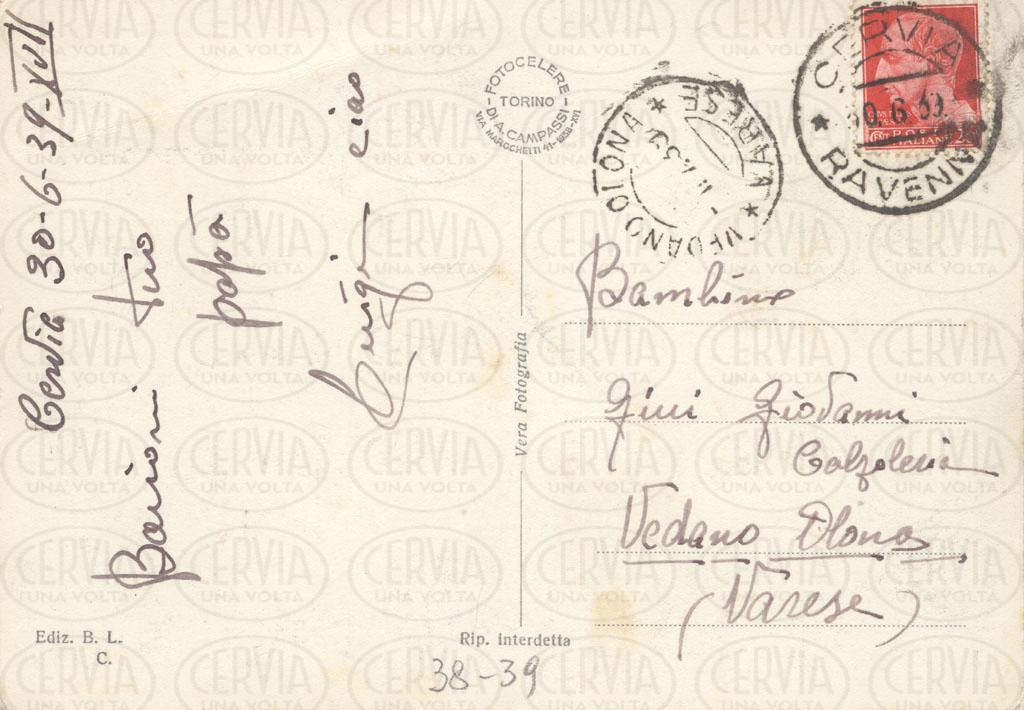 Cervia 30-6-39-XVII
Bacioni tuo
papà
Luigi ciao
FOTOCELERE
TORINO
DI A. CAMPASSI
VIA MAROCHETTI 41-1938-XVI
Vera Fotografia
VEDANO OLONA
VARESE
CERVIA
30.6.39
RAVENNA
ITALIANE
Bambino
Gini Giovanni
Calzoleria
Vedano Olona
(Varese)
Ediz. B. L.
C.
Rip. interdetta
38-39
CERVIA
UNA VOLTA